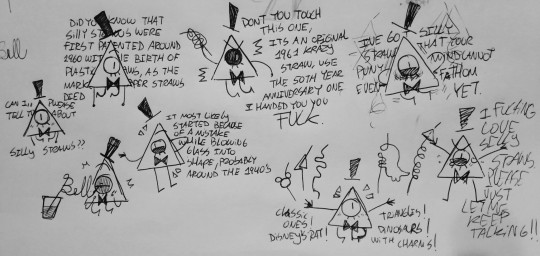 Bill
DID YOU KNOW THAT
SILLY STRAWS WERE
FIRST PATENTED AROUND
1960 WITH THE BIRTH OF
PLASTIC STRAWS, AS THE
MARKET PAPER STRAWS
DIED
DON'T YOU TOUCH
THIS ONE,
ITS AN ORIGINAL
1961 KRAZY
STRAW, USE
THE 50TH YEAR
ANNIVERSARY ONE
I HANDED YOU YOU
FUCK.
I'VE GO
STRAW
PUNY
EVEN
SILLY
THAT YOUR
MIND CANNOT
FATHOM
YET.
CAN I PLEASE
TELL ABOUT
SILLY STRAWS??
IT MOST LIKELY
STARTED BECAUSE
OF A MISTAKE
WHILE BLOWING
GLASS INTO
SHAPE, PROBABLY
AROUND THE 1940'S
Bill
CLASSIC
ONES!
DISNEY'S RAT!
TRIANGLES!
DINOSAURS!
WITH CHARMS!
I FUCKING
LOVE
SILLY
STRAWS
PLEASE
JUST
LET ME
KEEP
TALKING!!